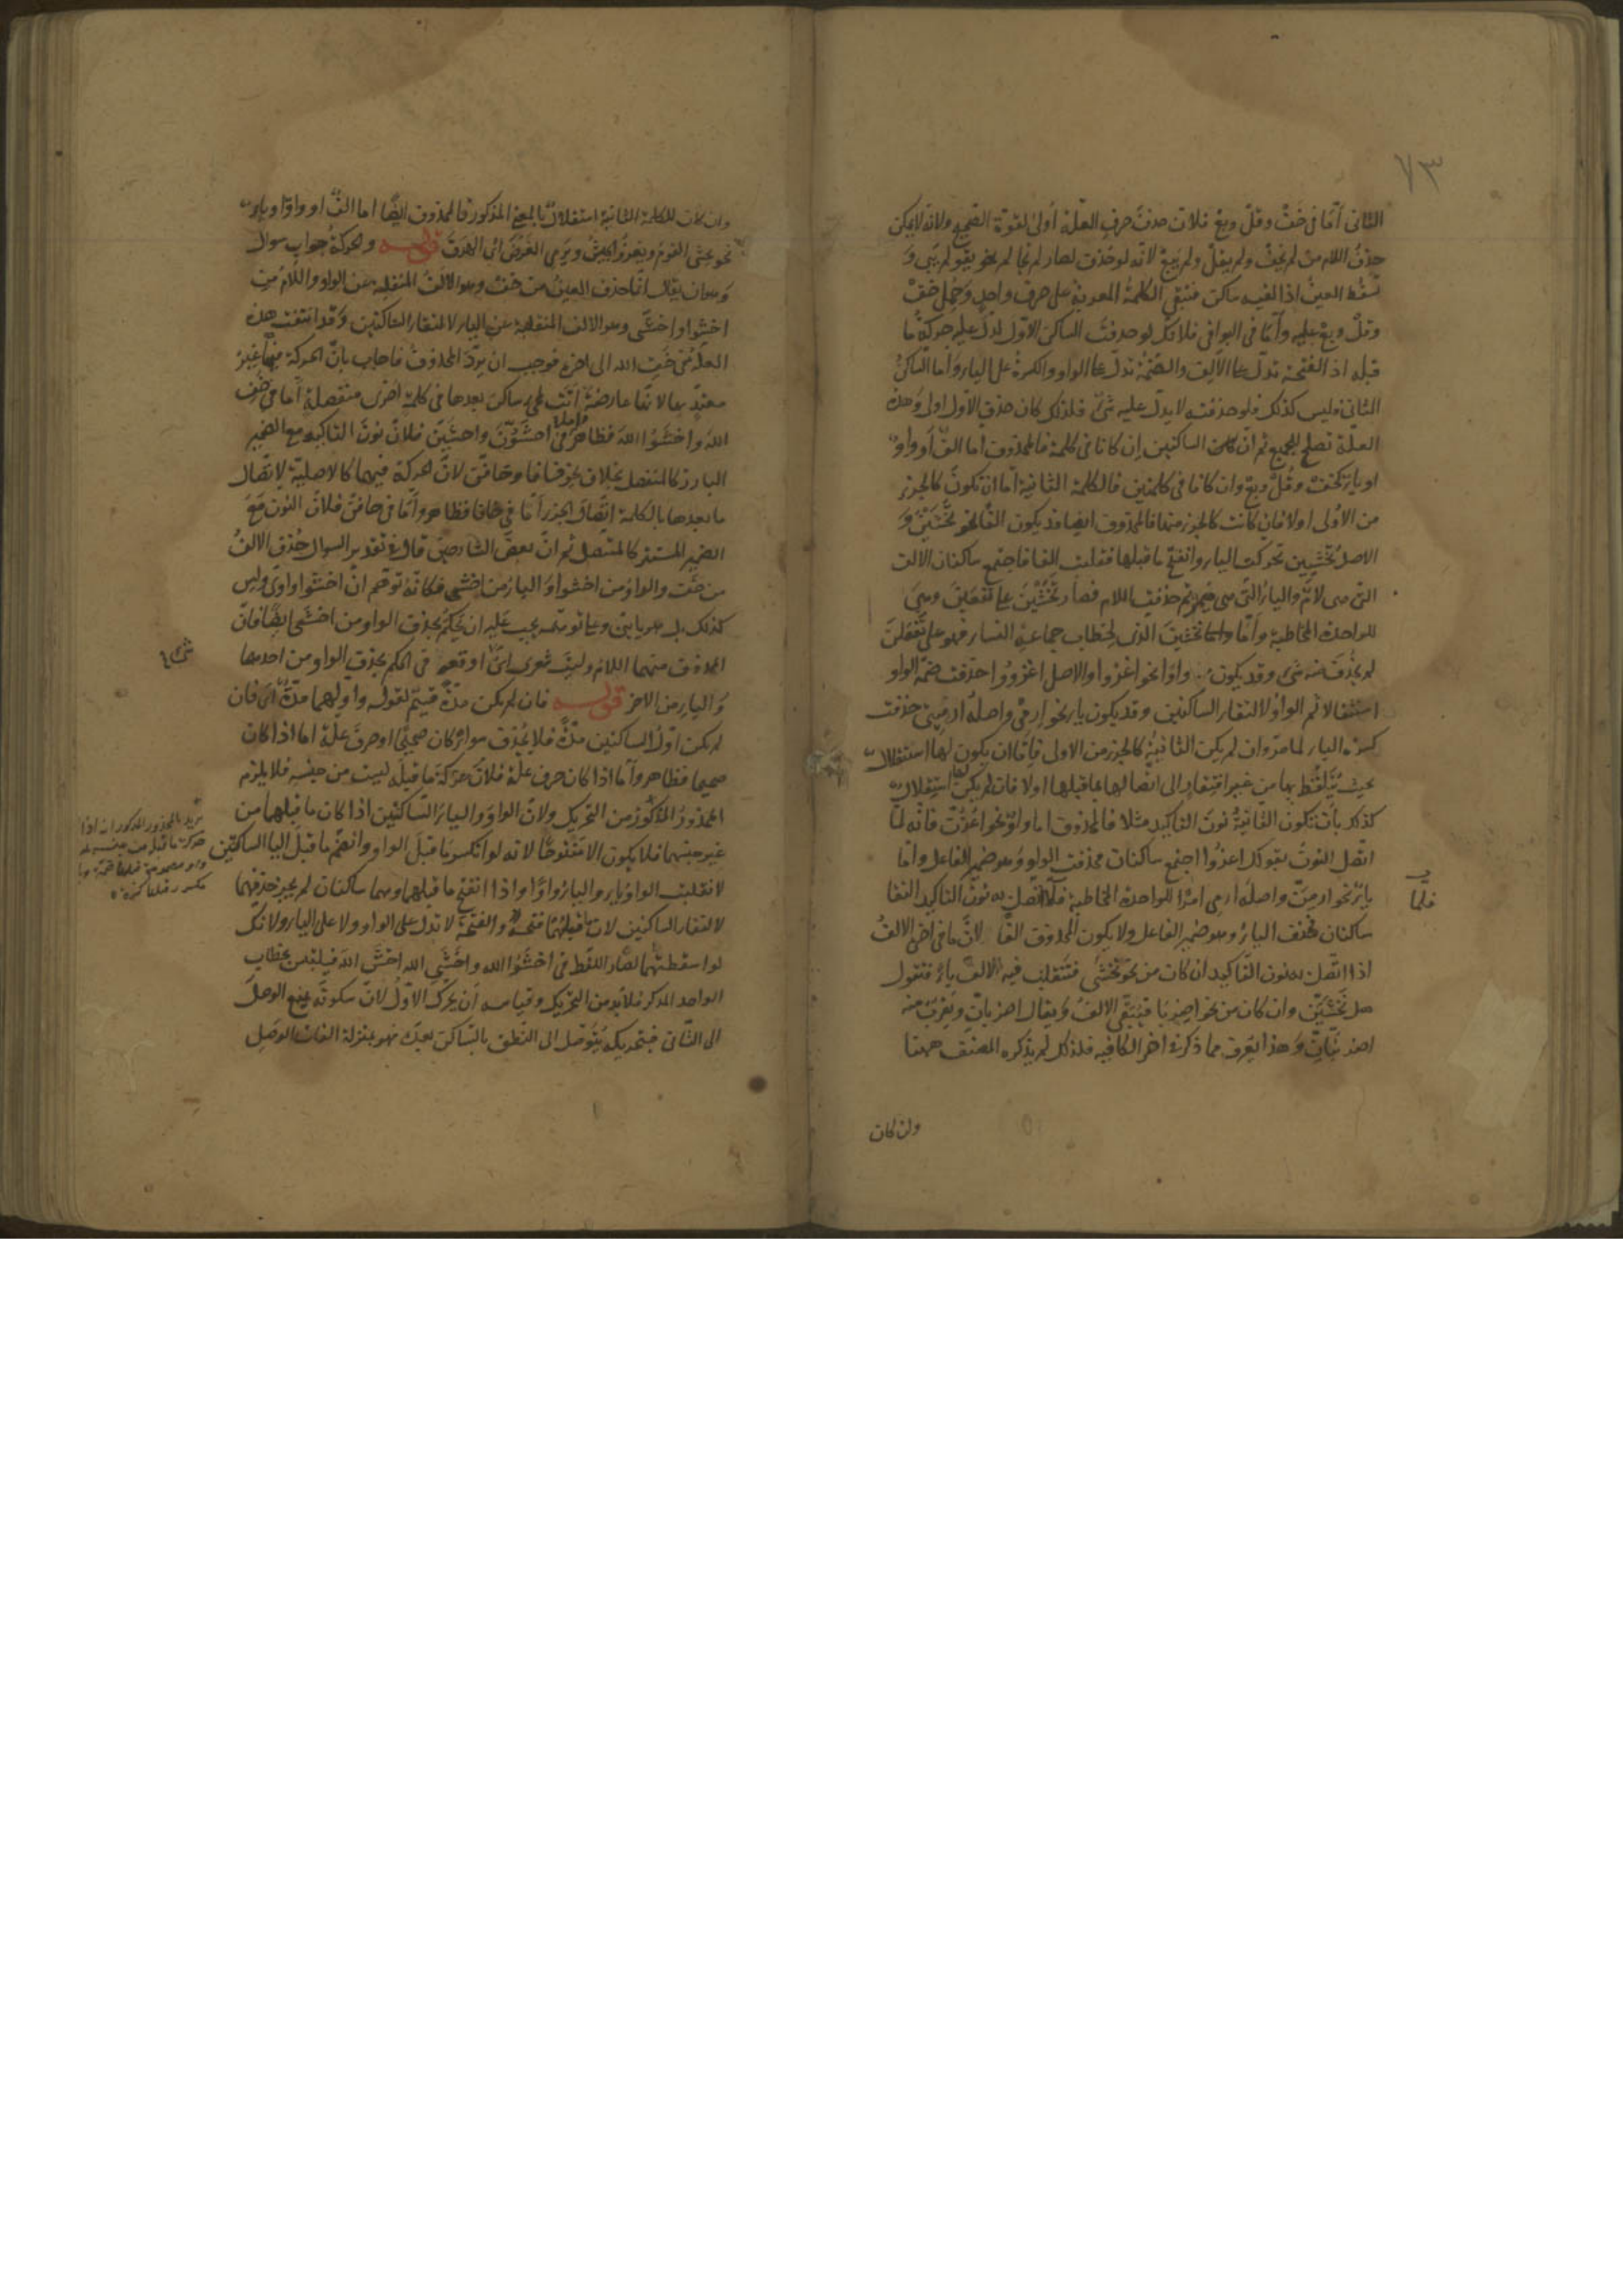 ٧٣
الثانى أمّا فى خَفْ وقُلْ وبِعْ فلان حذفَ حرفِ العلّة أولى لقوّة الصحيح ولانه لا يمكن
حذفُ اللام من لم يَخَفْ ولم يقُلْ ولم يَبِعْ لانّه لو حُذف لصار لم نجا لم نحو يقو لم يَبى وَ
العينُ اذا لقيه ساكن فتبقى الكلمة المعربة على حرفٍ واحدٍ وحُمِل خَفْ
وقُلْ وبِعْ عليه وأمّا فى البواقى فلانك لو حذفتَ الساكن الاوّل لدلّ عليه حركةُ ما
قبله اذ الفتحة تدلّ على الالِف والضمّة تدلّ على الواو والكسرةُ على الياء وأما الساكنُ
الثانى فليس كذلك فلو حذفته لا يدلّ عليه شىٌ فلذلك كان حذف الاوّل اولى وهذه
العلّة تصلح للجميع ثم انّ الساكنين إن كانا فى كلمة فالمحذوف اما الفٌ أو واوٌ
او ياءٌ كخف وقُلْ وبِعْ وان كانا فى كلمتين فالكلمة الثانية اما ان تكون كالجزء
من الأولى اولا فان كانت كالجزء منها فالمحذوف ايضا قد يكون الفًا نحو تخشَينَ وَ
الاصل تخشَيين تحركت الياء وانفتح ما قبلها فقلبت الفا فاجتمع ساكنان الالف
التى هى لامٌ والياءُ التى هى ضميرٌ ثم حذفت اللام فصار تَخْشَيْنَ على تَفْعَيْنَ وهى
للواحدة المخاطبة وأمّا تخشَينَ الذى لخطاب جماعة النساء فهو على تَفْعَلنَ
لم يُحذَف منه شىٌ وقد يكون واوًا نحو اغزوا والاصل اغزُوُوا حذفت ضمّة الواو
استثقالا ثم الواوُ لالتقاء الساكنين وقد يكون ياء نحو ارمى واصلُه ارمِيِى حذفت
كسرة الياء لما مرّ وان لم يكن الثانيةُ كالجزء من الاولى فإمّا ان يكون لها استقلالٌ
بحيث يُتَلفَّظ بها من غير افتقار الى اتصالها بما قبلها اولا فان لم يكن لها استقلالٌ
كذلك بأن تكون الثانيةُ نونَ التاكيد مثلا فالمحذوف اما واوٌ نحو اغزُنّ فانه لما
اتّصل النونُ بقولك اغزُوا اجتمع ساكنان فحذفت الواو وهو ضمير الفاعل وامّا
ياءٌ نحو ارمِنّ واصله ارمِى امرًا للواحدة المخاطبة فلما اتّصل به نونُ التاكيد التقا
ساكنان فحُذف الياءُ وهو ضمير الفاعل ولا يكون المحذوف الفًا لانّ ما فى آخره الالفُ
اذا اتّصل به نون التاكيد ان كان من نحو تخشَى فتنقلب فيه الالفُ ياءً فتقول
هل تَخْشَيَنّ وان كان من نحو اضرِبَا فيَبقى الالفُ ويقال اضربانّ ويَقرُب منه
اضربنانّ وهذا يُعرف مما ذكره اخر الكافيه فلذلك لم يذكره المصنّف ههنا
وان كان
فلمّا
وان كان للكلمة الثانية استقلالٌ بالمعنى المذكور فالمحذوف ايضًا اما الفٌ او واوًا وياءٌ
نحو يخشَى القومُ ويغزُو الجيشُ ويَرمى الغرضَ قوله والحركةُ جواب سوال
وهو ان يقال انّما حذف العينُ من خفْ وهو الالفُ المنقلبة عن الواو واللامُ من
اخشَوا واخشَى وهو الالف المنقلبة عن الياء لالتقاء الساكنين وقد انتفت هذه
العلّة فى خَفِ الله الى اخره فوجب ان يردّ المحذوفُ فاجاب بانّ الحركة فيها غيرُ
معتدٍّ بها لانّها عارضةٌ اتَت ساكن بعدها فى كلمةٍ اخرى منفصلةٍ أما فى خَف
اللهَ واخشَوُا اللهَ فظاهرٌ فى اخشَوُنّ واخشَيِنّ فلانّ نونَ التاكيد مع الضمير
البارز كالمنفصل بخلاف نحو خافا وخافنّ لانّ الحركة فيهما كالاصليّة لاتّصال
ما بعدها بالكلمة اتّصالَ الجزء أمّا فى خافا فظاهر وأمّا فى خافنّ فلانّ النون مَعَ
الضمير المستتر كالمتّصل ثم انّ بعضَ الشارحين قال فى تقدير السوال حُذف الالفُ
من خَفْ والواوُ من اخشوا والياءُ من اخشى فكانّه توهّم انّ اخشَوا واوىّ وليس
كذلك بل هو يائىٌ وعلى توهّمه يجب عليه ان يَحكُم بحذف الواو من اخشَى ايضًا فانّ
المحذوف منهما اللام وليتَ شعرى اىّ اوقعه فى الحكم بحذف الواو من احدهما
والياءِ من الاخر قوله فان لم يكن مدّةٌ قسيمٌ لقوله واوّلهما مدّةٌ أى فان
لم يكن اوّلُ الساكنين مدّةً فلا يُحذف سواءٌ كان صحيحًا او حرفَ علّة اما اذا كان
صحيحا فظاهر وأما اذا كان حرف علّة فلانّ حركة ما قبله ليست من جنسه فلا يلزم
المحذورُ المذكورُ من التحريك ولانّ الواوَ والياءَ الساكنين اذا كان ما قبلهما من
غير جنسهما فلا يكون الا مفتوحًا لانه لو انكسر ما قبلَ الواو وانضمّ ما قبلَ اليا الساكنين
لانقلبت الواوُ ياءً والياءُ واوًا واذا انفتح ما قبلهما وهما ساكنان لم يجز حذفهما
لالتقاء الساكنين لان ما قبلهما فتحةٌ والفتحة لا تدل على الواو ولا على الياء ولانّك
لو اسقطتهما لصار اللفظ فى اخشَوُا الله واخشَىِ الله اخشَ اللهَ فيلتبس بخطاب
الواحد المذكر فلا بُد من التحريك وقياسه أن يحرّك الاوّلُ لانّ سكونَه يمنع الوصلَ
الى الثانى فبتحريكه يُتوصّل الى النطق بالساكن بعده فهو بمنزلة الفات الوصل
يريد بالمحذور المذكور انه اذا
حركة ما قبل من جنسه